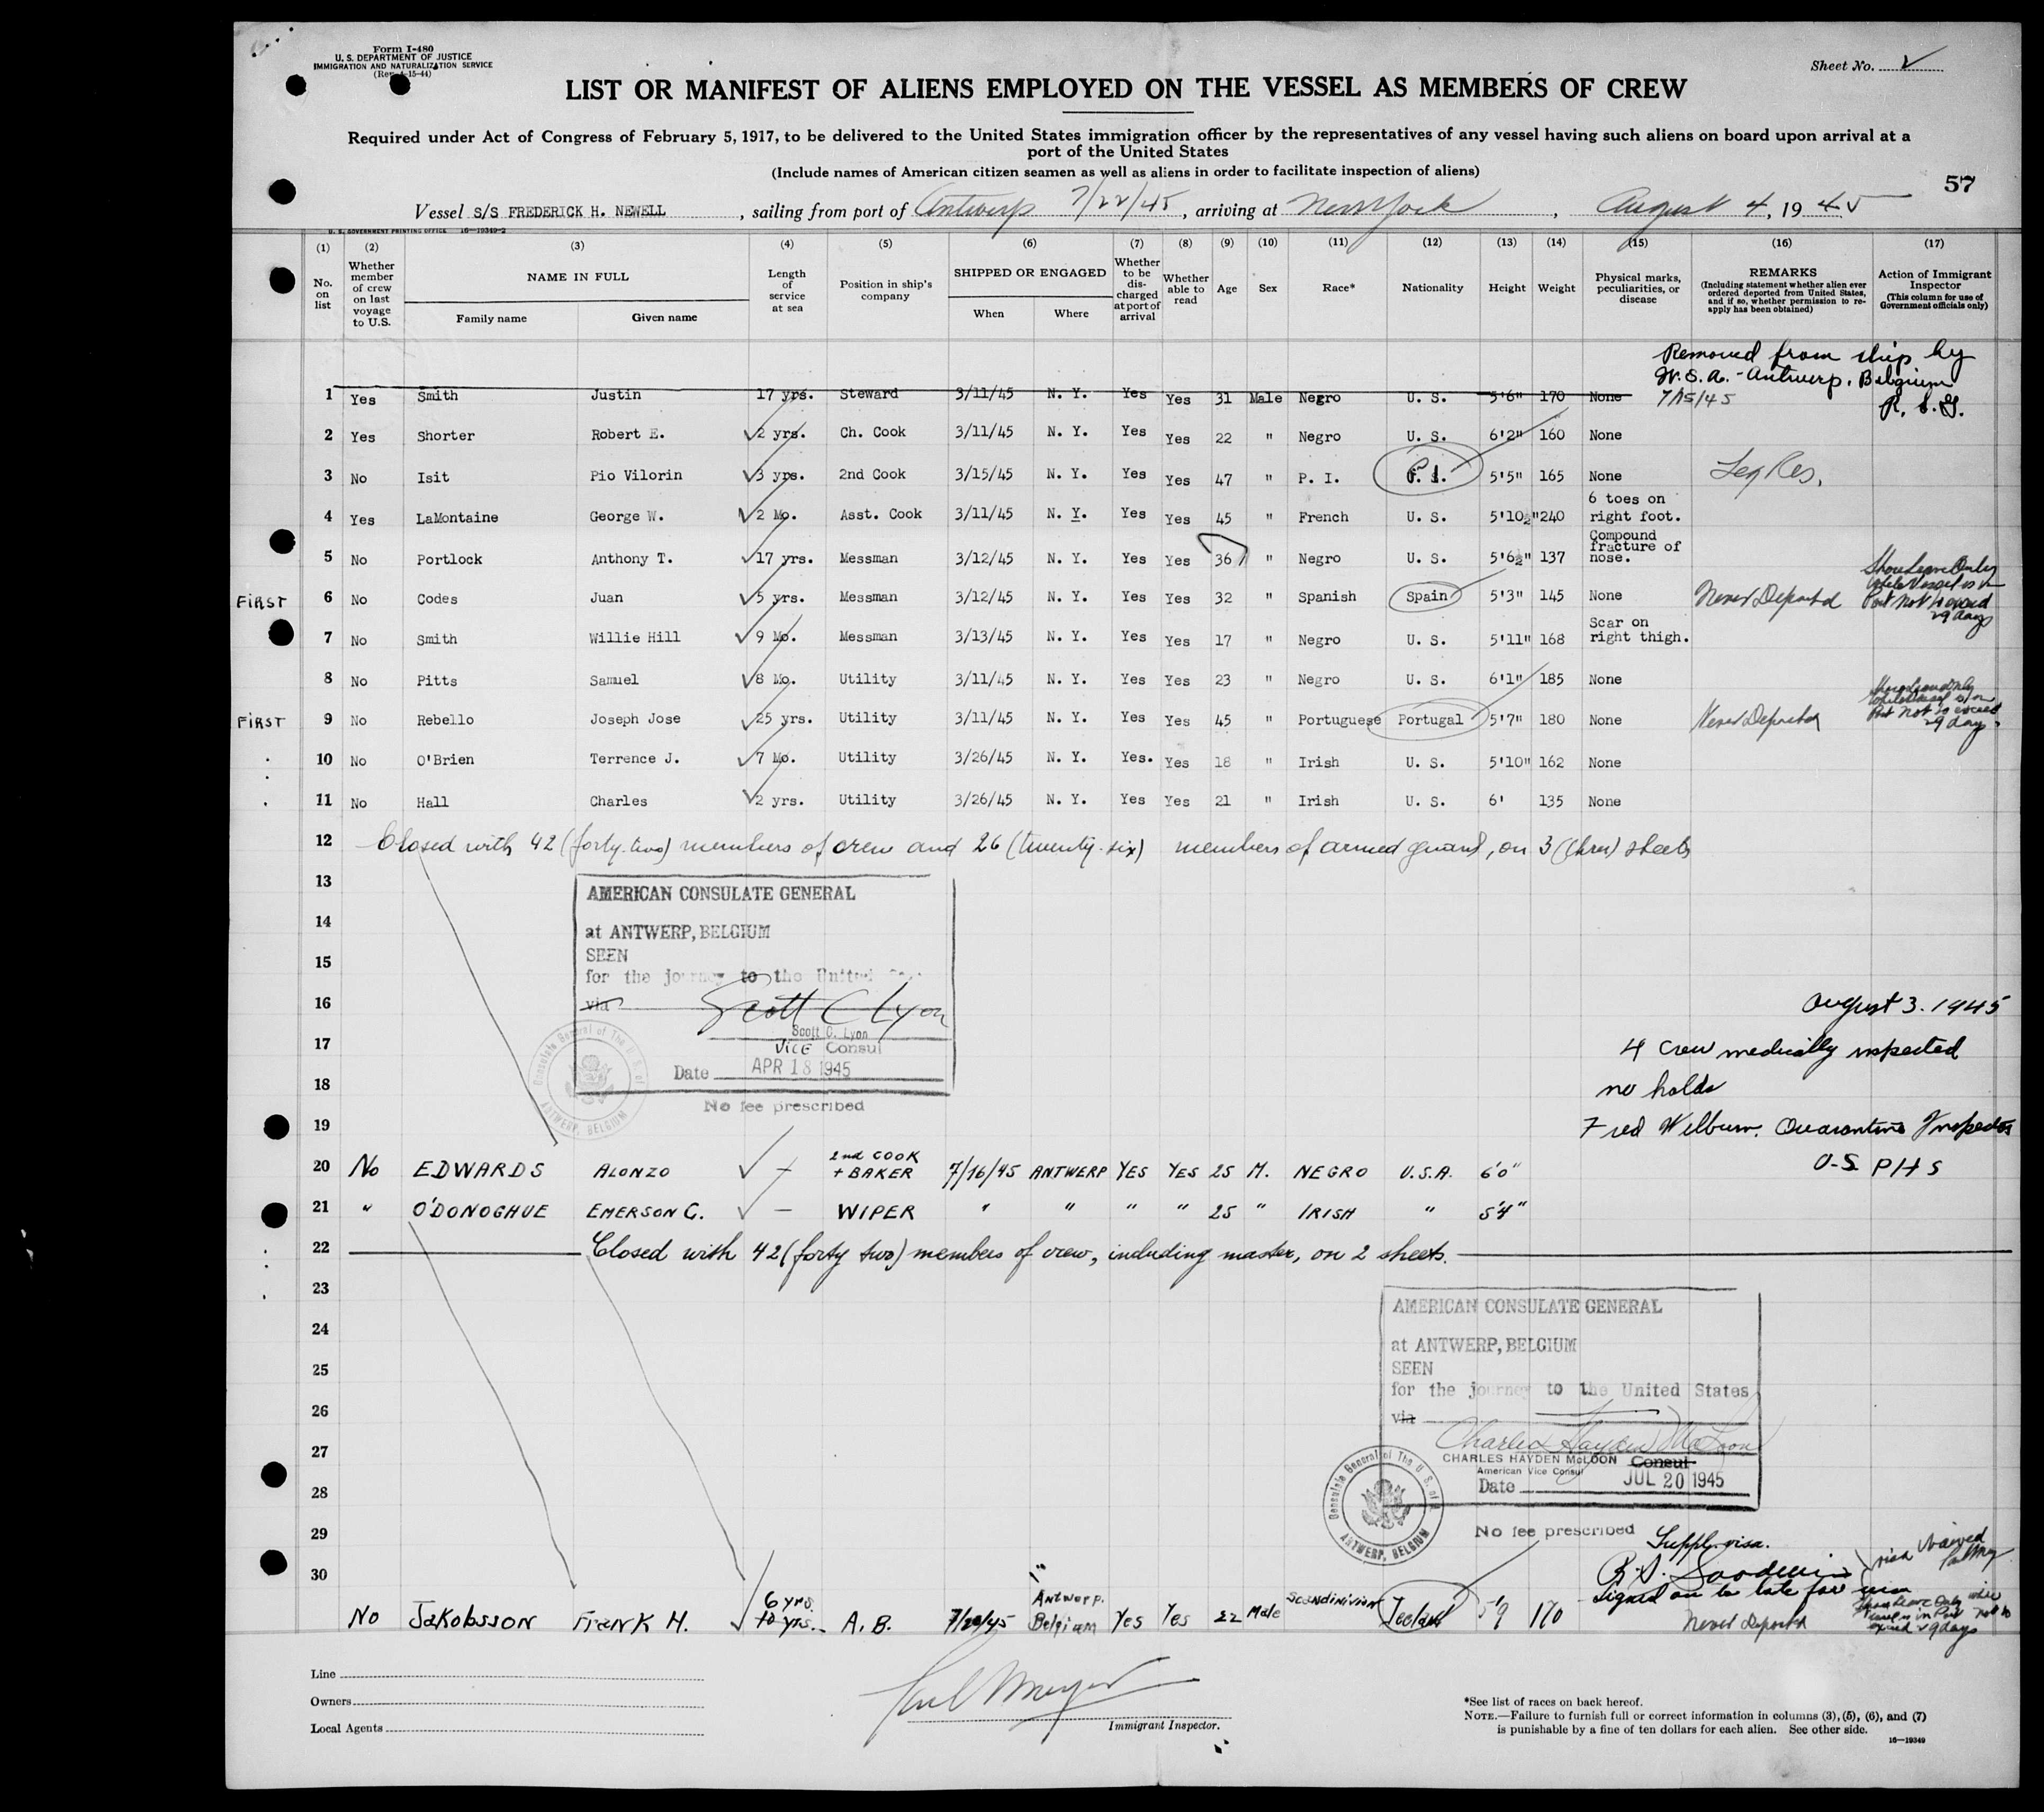 Form I-480
U. S. DEPARTMENT OF JUSTICE
IMMIGRATION AND NATURALIZATION SERVICE
(Rev. 4-15-44)
Sheet No.
LIST OR MANIFEST OF ALIENS EMPLOYED ON THE VESSEL AS MEMBERS OF CREW
Required under Act of Congress of February 5, 1917, to be delivered to the United States immigration officer by the representatives of any vessel having such aliens on board upon arrival at a
port of the United States
(Include names of American citizen seamen as well as aliens in order to facilitate inspection of aliens)
57
Vessel S/S FREDERICK H. NEWELL, sailing from port of Antwerp 7/22/45, arriving at New York, August 4, 1945
U. S. GOVERNMENT PRINTING OFFICE 16-19349-2
(1) (2) (3) (4) (5) (6) (7) (8) (9) (10) (11) (12) (13) (14) (15) (16) (17)
No. on list
Whether member of crew on last voyage to U.S.
NAME IN FULL
Family name
Given name
Length of service at sea
Position in ship's company
SHIPPED OR ENGAGED
When
Where
Whether to be discharged at port of arrival
Whether able to read
Age
Sex
Race*
Nationality
Height
Weight
Physical marks, peculiarities, or disease
REMARKS
(Including statement whether alien ever ordered deported from United States, and if so, whether permission to reapply has been obtained)
Action of Immigrant Inspector
(This column for use of Government officials only)
Removed from ship by
W.S.A. - Antwerp, Belgium
7/15/45 R. S. G.
1 Yes Smith Justin 17 yrs. Steward 3/11/45 N. Y. Yes Yes 31 Male Negro U. S. 5'6" 170 None
2 Yes Shorter Robert E. 2 yrs. Ch. Cook 3/11/45 N. Y. Yes Yes 22 " Negro U. S. 6'2" 160 None
3 No Isit Pio Vilorin 3 yrs. 2nd Cook 3/15/45 N. Y. Yes Yes 47 " P. I. P. I. 5'5" 165 None Leg Res.
4 Yes LaMontaine George W. 2 Mo. Asst. Cook 3/11/45 N. Y. Yes Yes 45 " French U. S. 5'10½" 240 6 toes on right foot.
5 No Portlock Anthony T. 17 yrs. Messman 3/12/45 N. Y. Yes Yes 36 " Negro U. S. 5'6½" 137 Compound fracture of nose.
FIRST 6 No Codes Juan 5 yrs. Messman 3/12/45 N. Y. Yes Yes 32 " Spanish Spain 5'3" 145 None Never Deported Shore Leave Only while Vessel is in Port not to exceed 29 days
7 No Smith Willie Hill 9 Mo. Messman 3/13/45 N. Y. Yes Yes 17 " Negro U. S. 5'11" 168 Scar on right thigh.
8 No Pitts Samuel 8 Mo. Utility 3/11/45 N. Y. Yes Yes 23 " Negro U. S. 6'1" 185 None
FIRST 9 No Rebello Joseph Jose 25 yrs. Utility 3/11/45 N. Y. Yes Yes 45 " Portuguese Portugal 5'7" 180 None Never Deported Shore Leave Only while Vessel is in Port Not to exceed 29 days
10 No O'Brien Terrence J. 7 Mo. Utility 3/26/45 N. Y. Yes. Yes 18 " Irish U. S. 5'10" 162 None
11 No Hall Charles 2 yrs. Utility 3/26/45 N. Y. Yes Yes 21 " Irish U. S. 6' 135 None
12 Closed with 42 (forty-two) members of crew and 26 (twenty-six) members of armed guard, on 3 (three) sheets
13
AMERICAN CONSULATE GENERAL
14
at ANTWERP, BELGIUM
SEEN
15
for the journey to the United
16
via
Scott C Lyon
Scott C. Lyon
August 3. 1945
17
Vice Consul
4 2 crew medically inspected
Date APR 18 1945
18
no holds
No fee prescribed
Consulate General of The U. S. of A. ANTWERP, BELGIUM
19
Fred Wilburn. Quarantine Inspector
U.S. PHS
20 No EDWARDS ALONZO — 2nd COOK + BAKER 7/16/45 ANTWERP YES YES 25 M. NEGRO U.S.A. 6'0"
21 " O'DONOGHUE EMERSON C. — WIPER " " " " 25 " IRISH " 5'4"
22 Closed with 42 (forty two) members of crew, including master, on 2 sheets.
23
AMERICAN CONSULATE GENERAL
24
at ANTWERP, BELGIUM
25
SEEN
for the journey to the United States
26
via
27
Charles Hayden McLoon
CHARLES HAYDEN McLOON Consul
American Vice Consul
28
Date JUL 20 1945
Consulate General of The U. S. of A. ANTWERP, BELGIUM
29
No fee prescribed
Suppl. visa.
visa waived
30
Signed on to late for visa
No Jakobsson Frank H. 6 yrs. 10 yrs. A. B. 7/20/45 Antwerp. Belgium Yes Yes 22 Male Scandinivian Iceland 5'9 170 Never Deported Shore Leave Only while Vessel is in Port not to exceed 29 days
Line
Owners
Local Agents
Paul Meyer
Immigrant Inspector.
*See list of races on back hereof.
NOTE.—Failure to furnish full or correct information in columns (3), (5), (6), and (7)
is punishable by a fine of ten dollars for each alien. See other side.
16—19349